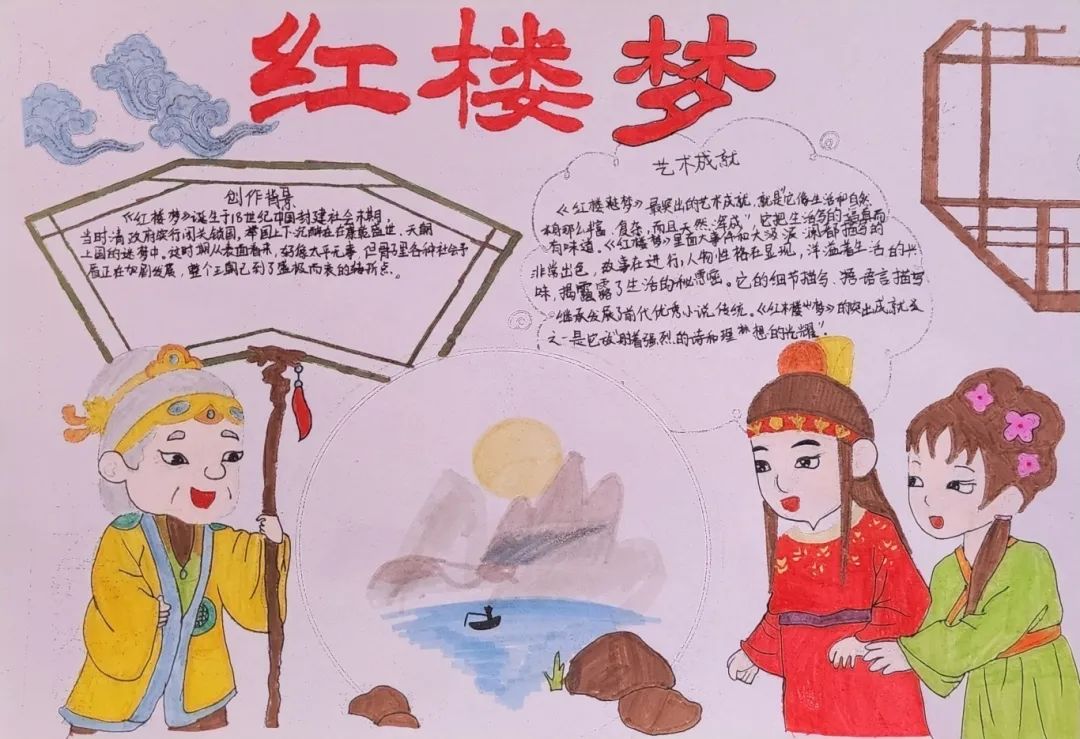 红楼梦
创作背景
《红楼梦》诞生于18世纪中国封建社会末期,
当时清政府实行闭关锁国,举国上下沉醉在在康乾盛世、天朝
上国的迷梦中。这时期从表面看来,好像太平无事,但骨子里各种社会矛
盾正在加剧发展,整个王朝已到了盛极而衰的转折点。
艺术成就
《红楼梦》最突出的艺术成就,就是"它像生活和自然
本身那么丰富、复杂,而且天然浑成",它把生活
有味道。《红楼梦》里面大事件和大波澜都描写的
非常出色,故事在进行,人物性格在显现,洋溢着生活的兴
味,揭露了生活的秘密。它的细节描写、语言描写
继承发展了前代优秀小说传统。《红楼梦》的突出成就之
之一是它 着强烈的诗和理想的光耀"。